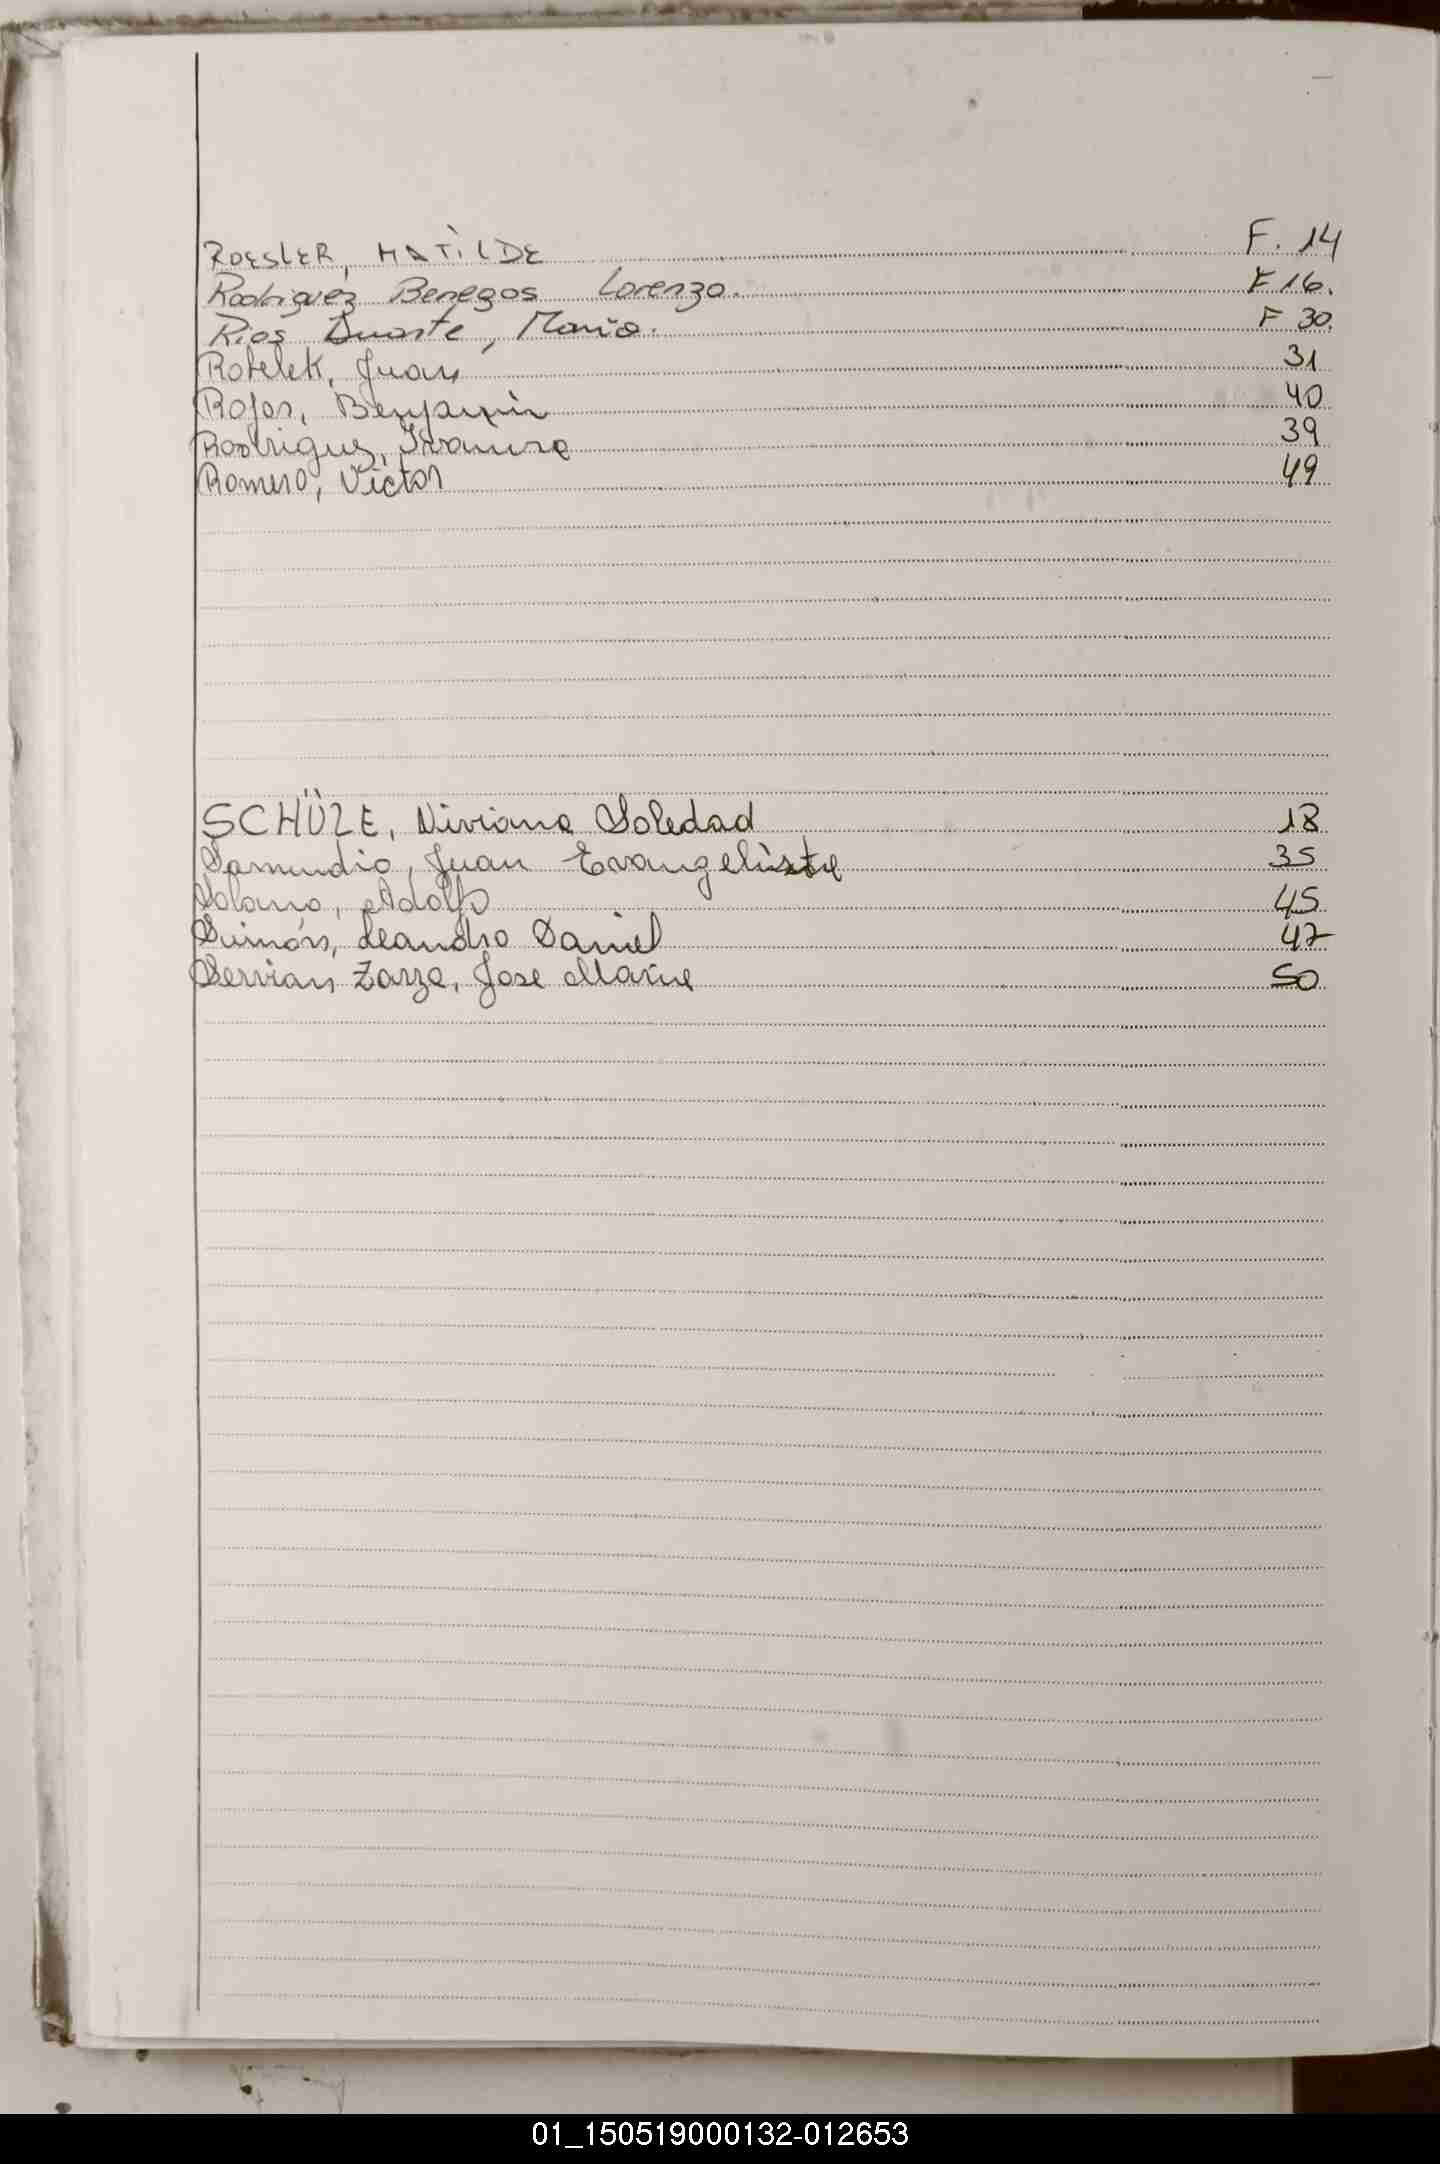 ROESLER, MATILDE F. 14
Rodriguez Benegas Lorenzo. F 16.
Rios Duarte, Maria. F 30.
Juan 31
Rojas, Benjamin 40
Rodriguez, 39
Romero, Victor 49
SCHÜZE, Viviana Soledad 18
Samudio, Juan Evangelista 35
Solano, Adolfo 45
Simón, Leandro Daniel 47
Servian Zarza, Jose Maria 50
01_150519000132-012653